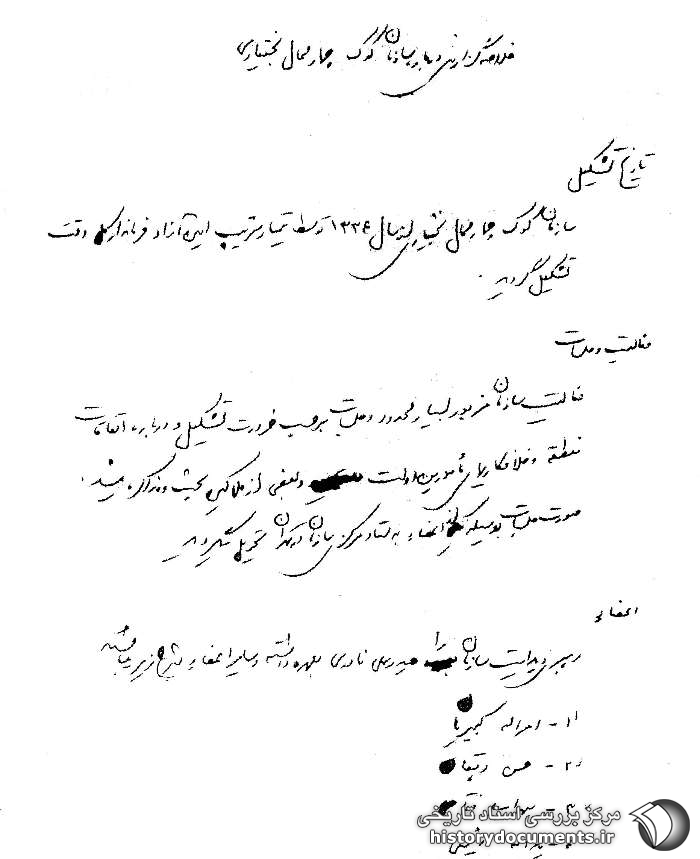 خلاصه گزارش درباره سازمان کوک چهارمحال بختیاری
تاریخ تشکیل
سازمان کوک چهارمحال بختیاری در سال ۱۳۳۶ توسط تیمسار سرتیپ آزاد فرماندار کل وقت
تشکیل گردید.
فعالیت و جلسات
فعالیت سازمان مزبور بسیار محدود و جلسات برحسب ضرورت تشکیل و درباره اتفاقات
منطقه و خلافکاریهای مأمورین دولت و بعضی از مالکین بحث و مذاکره میشد.
صورت جلسات بوسیله اعضاء به ستاد مرکزی سازمان در تهران تحویل میگردید
اعضاء
رهبری و هدایت سازمان را حیدرعلی نادری بعهده داشته و سایر اعضاء بشرح زیر میباشند
۱- امراله
۲- حسن
۳-
مرکز بررسی اسناد تاریخی
historydocuments.ir